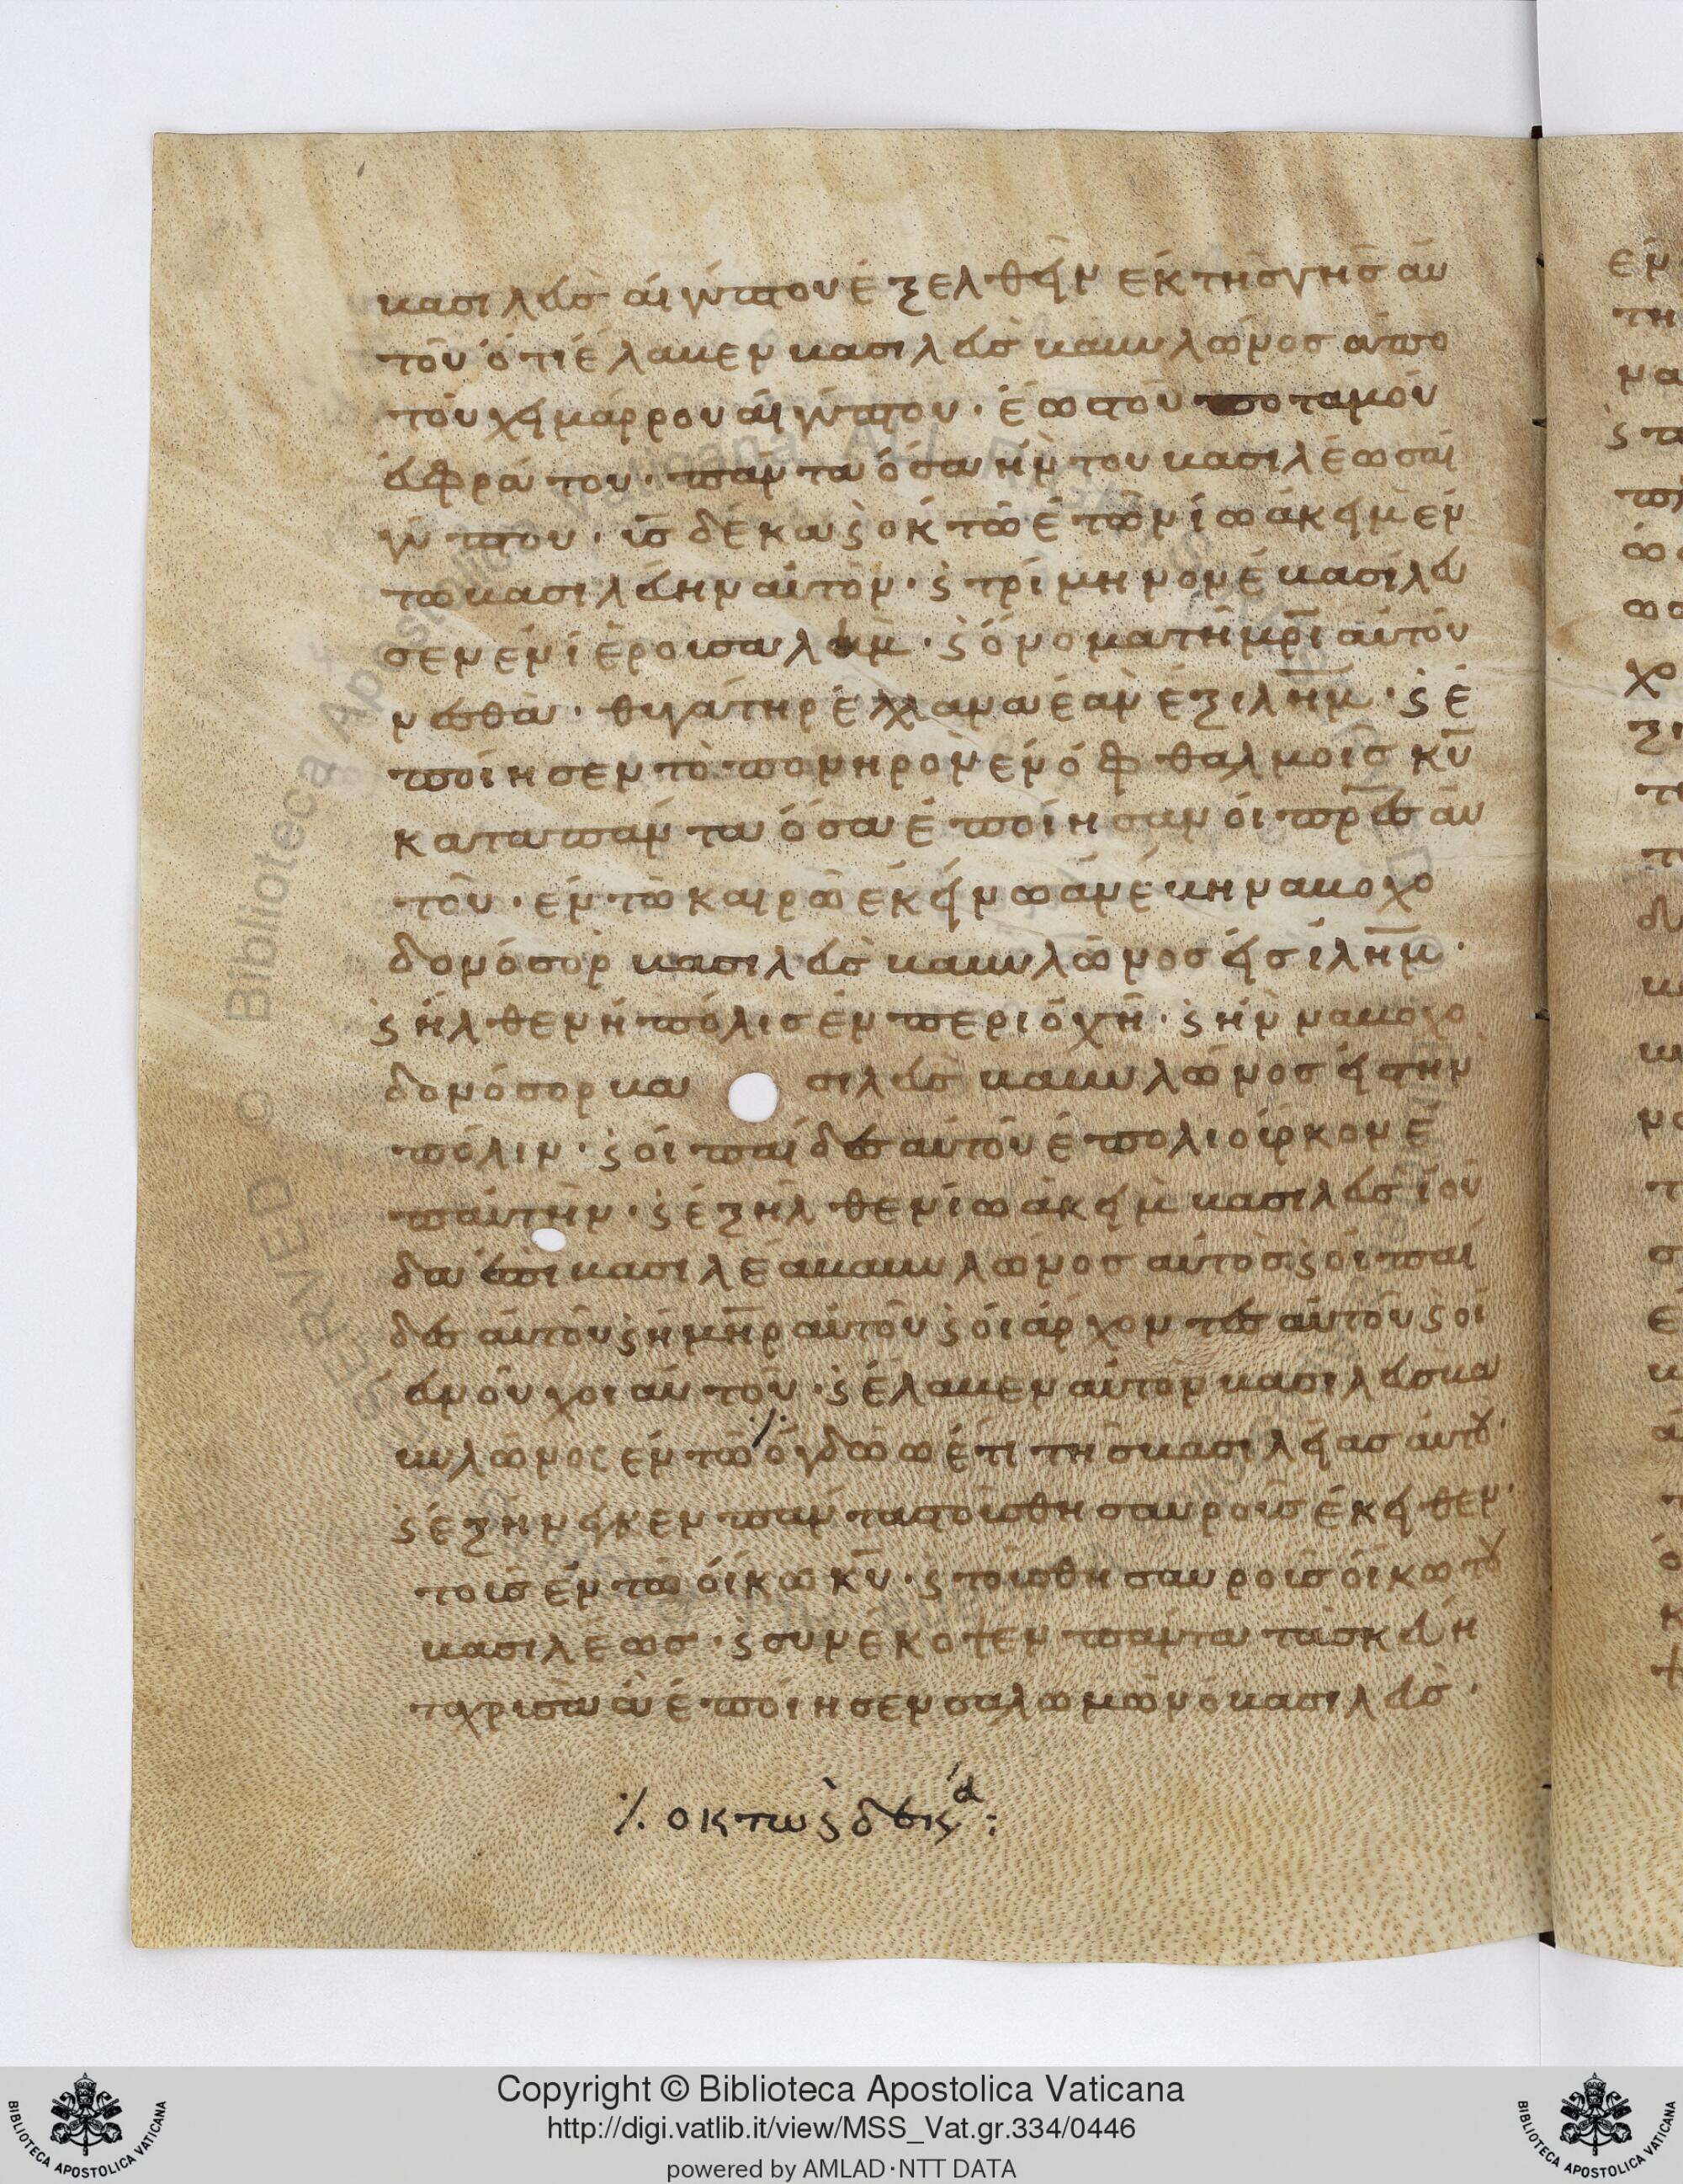 βασιλεὺσ αἰγύπτου ἐξελθεῖν ἐκ τῆσ γῆσ αὐ
τοῦ ὅτι ἔλαβεν βασιλεὺσ βαβυλῶνοσ ἀπὸ
τοῦ χειμάρρου αἰγύπτου · ἕωσ τοῦ ποταμοῦ
εὐφράτου · πάντα ὅσα ἦν τοῦ βασιλέωσ αἰ
γύπτου · ϋσ δέκα ϛ ὀκτὼ ἐτῶν ἰωακεὶμ ἐν
τῶ βασιλεύειν αὐτὸν · ϛ τρίμηνον ἐβασίλευ
σεν ἐν ἱερουσαλὴμ · ϛ ὄνομα τῆ μρ̅ι αὐτοῦ
νεσθὰ · θυγάτηρ ἐλλαμαέαν ἐξ ιλη̅μ · ϛ ἐ
ποίησεν τὸ πονηρὸν ἐν ὀφθαλμοῖσ κ̅υ
κατὰ πάντα ὅσα ἐποίησαν οἱ πρ̅εσ αὐ
τοῦ · ἐν τῶ καιρῶ ἐκείνω ἀνέβη ναβουχο
δονόσορ βασιλεὺσ βαβυλῶνοσ εἰσ ιλη̅μ ·
ϛ ἦλθεν ἡ πόλισ ἐν περιοχῆ · ϛ ἦν ναβουχο
δονόσορ βα σιλεὺσ βαβυλῶνοσ εἰσ τὴν
πόλιν · ϛ οἱ παῖδεσ αὐτοῦ ἐπολιόρκουν ἐ
π' αὐτὴν · ϛ ἐξῆλθεν ἰωακεὶμ βασιλεὺσ ἰού
δα ἐπὶ βασιλέα βαβυλῶνοσ αὐτὸσ ϛ οἱ παῖ
δεσ αὐτοῦ ϛ ἡ μη̅ρ αὐτοῦ ϛ οἱ ἄρχοντεσ αὐτοῦ ϛ οἱ
εὐνοῦχοι αὐτοῦ · ϛ ἔλαβεν αὐτὸν βασιλεὺσ βα
βυλῶνος ἐν τῶ ⁒ ὀγδόω ἔτι τῆσ βασιλείασ αὐτοῦ ·
ϛ ἐξήνεικεν πάντασ τοὺσ θησαυροὺσ ἐκεῖθεν ·
τοὺσ ἐν τῶ οἴκω κ̅υ · ϛ τοὺσ θησαυροὺσ οἴκω τοῦ
βασιλέωσ · ϛ συνέκοψεν πάντα τὰ σκεύη
τὰ χρισᾶ ἃ ἐποίησεν σαλομὼν ὁ βασιλεὺσ ·
⁒ ὀκτὼ ϛ δεκ̣ά :
Copyright © Biblioteca Apostolica Vaticana
http://digi.vatlib.it/view/MSS_Vat.gr.334/0446
powered by AMLAD·NTT DATA
BIBLIOTECA APOSTOLICA VATICANA
BIBLIOTECA APOSTOLICA VATICANA